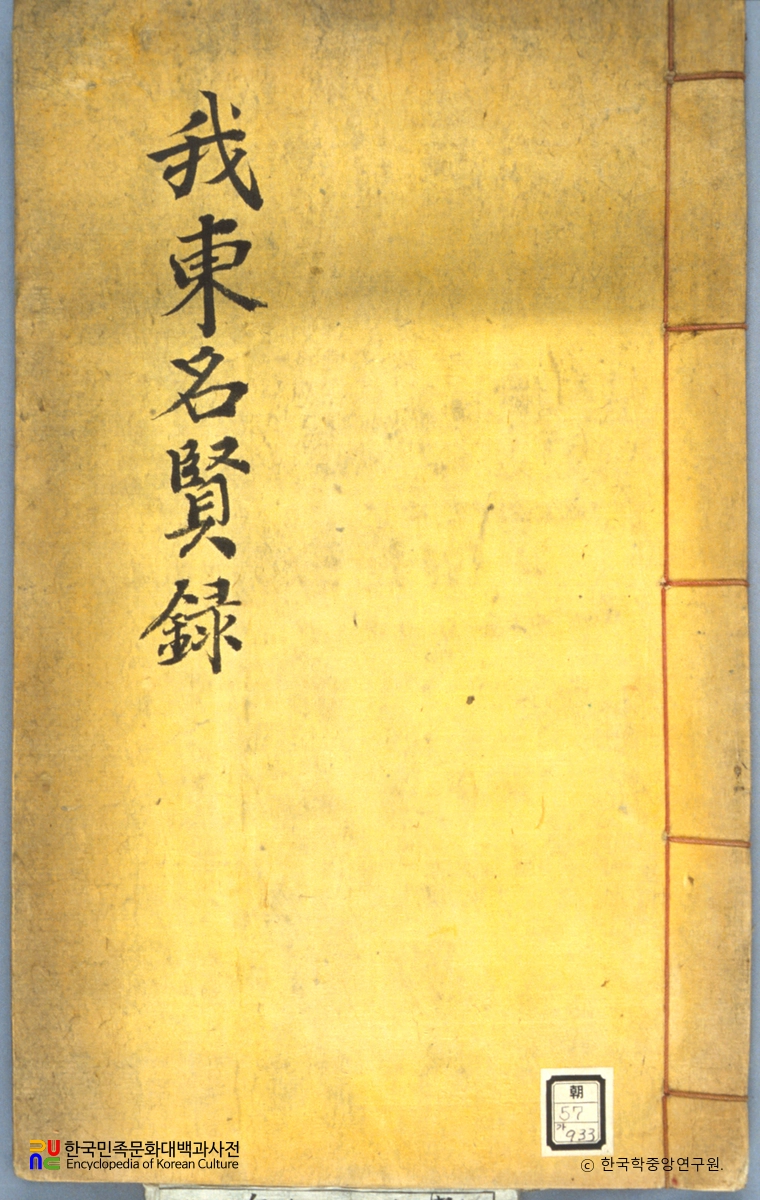 我東名賢録
朝
57
가
933
한국민족문화대백과사전
Encyclopedia of Korean Culture
© 한국학중앙연구원.